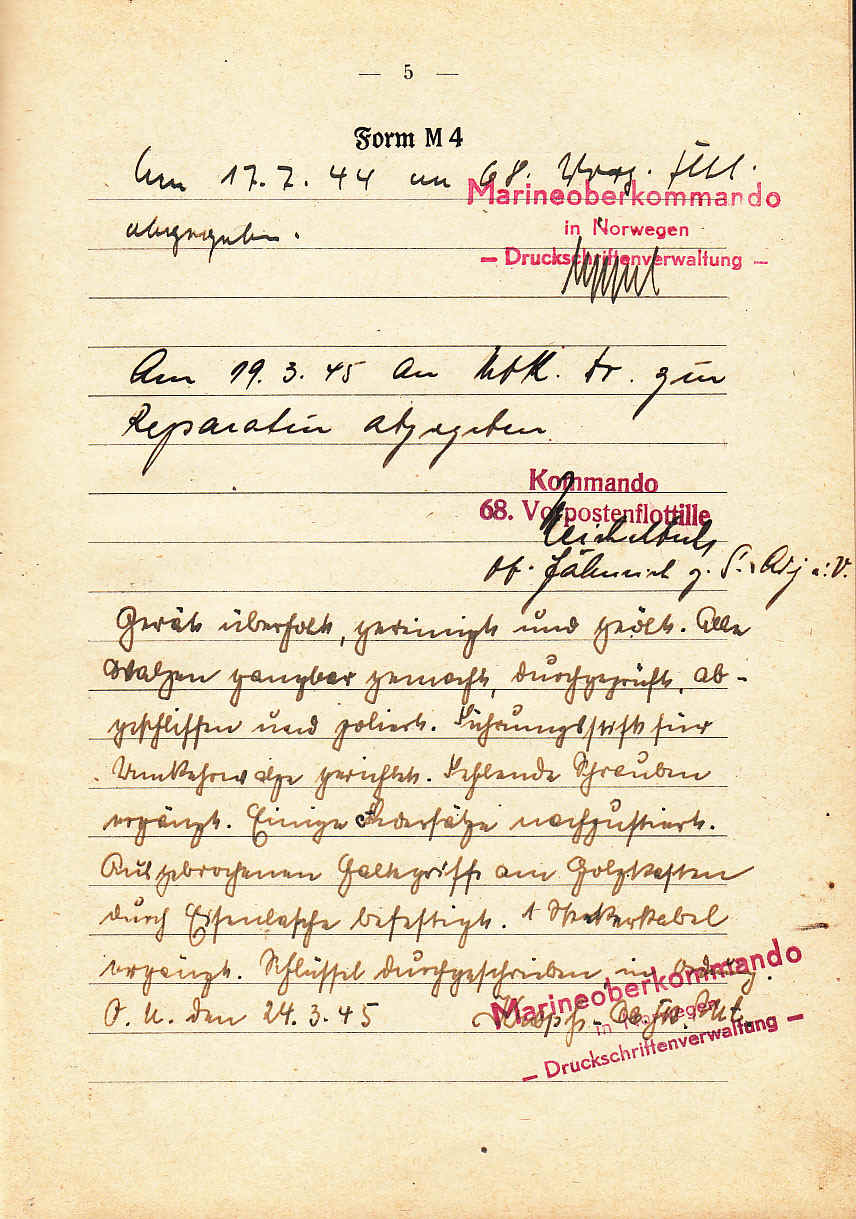 — 5 —
Form M 4
Am 17.7.44 an 68. Vorp. Flll.
Marineoberkommando
abgegeben.
in Norwegen
— Druckschriftenverwaltung —
Am 19.3.45 an MOK. Dr. zur
Reparatur abgegeben
Kommando
68. Vorpostenflottille
Ob. Fähnrich z. S. u. Adj i. V.
Gerät überholt, gereinigt und geölt. Alle
Walzen gangbar gemacht, durchgeprüft, ab-
geschliffen und poliert. Führungsstift für
Umkehrwalze gerichtet. Fehlende Schrauben
ergänzt. Einige Federsätze nachjustiert.
Ausgebrochenen Haltegriff am Holzkasten
durch Eisenlasche befestigt. 1 Steckerkabel
ergänzt. Schlüssel durchgeschrieben, in Ordng.
Marineoberkommando
O. U. den 24.3.45
in Norwegen
— Druckschriftenverwaltung —